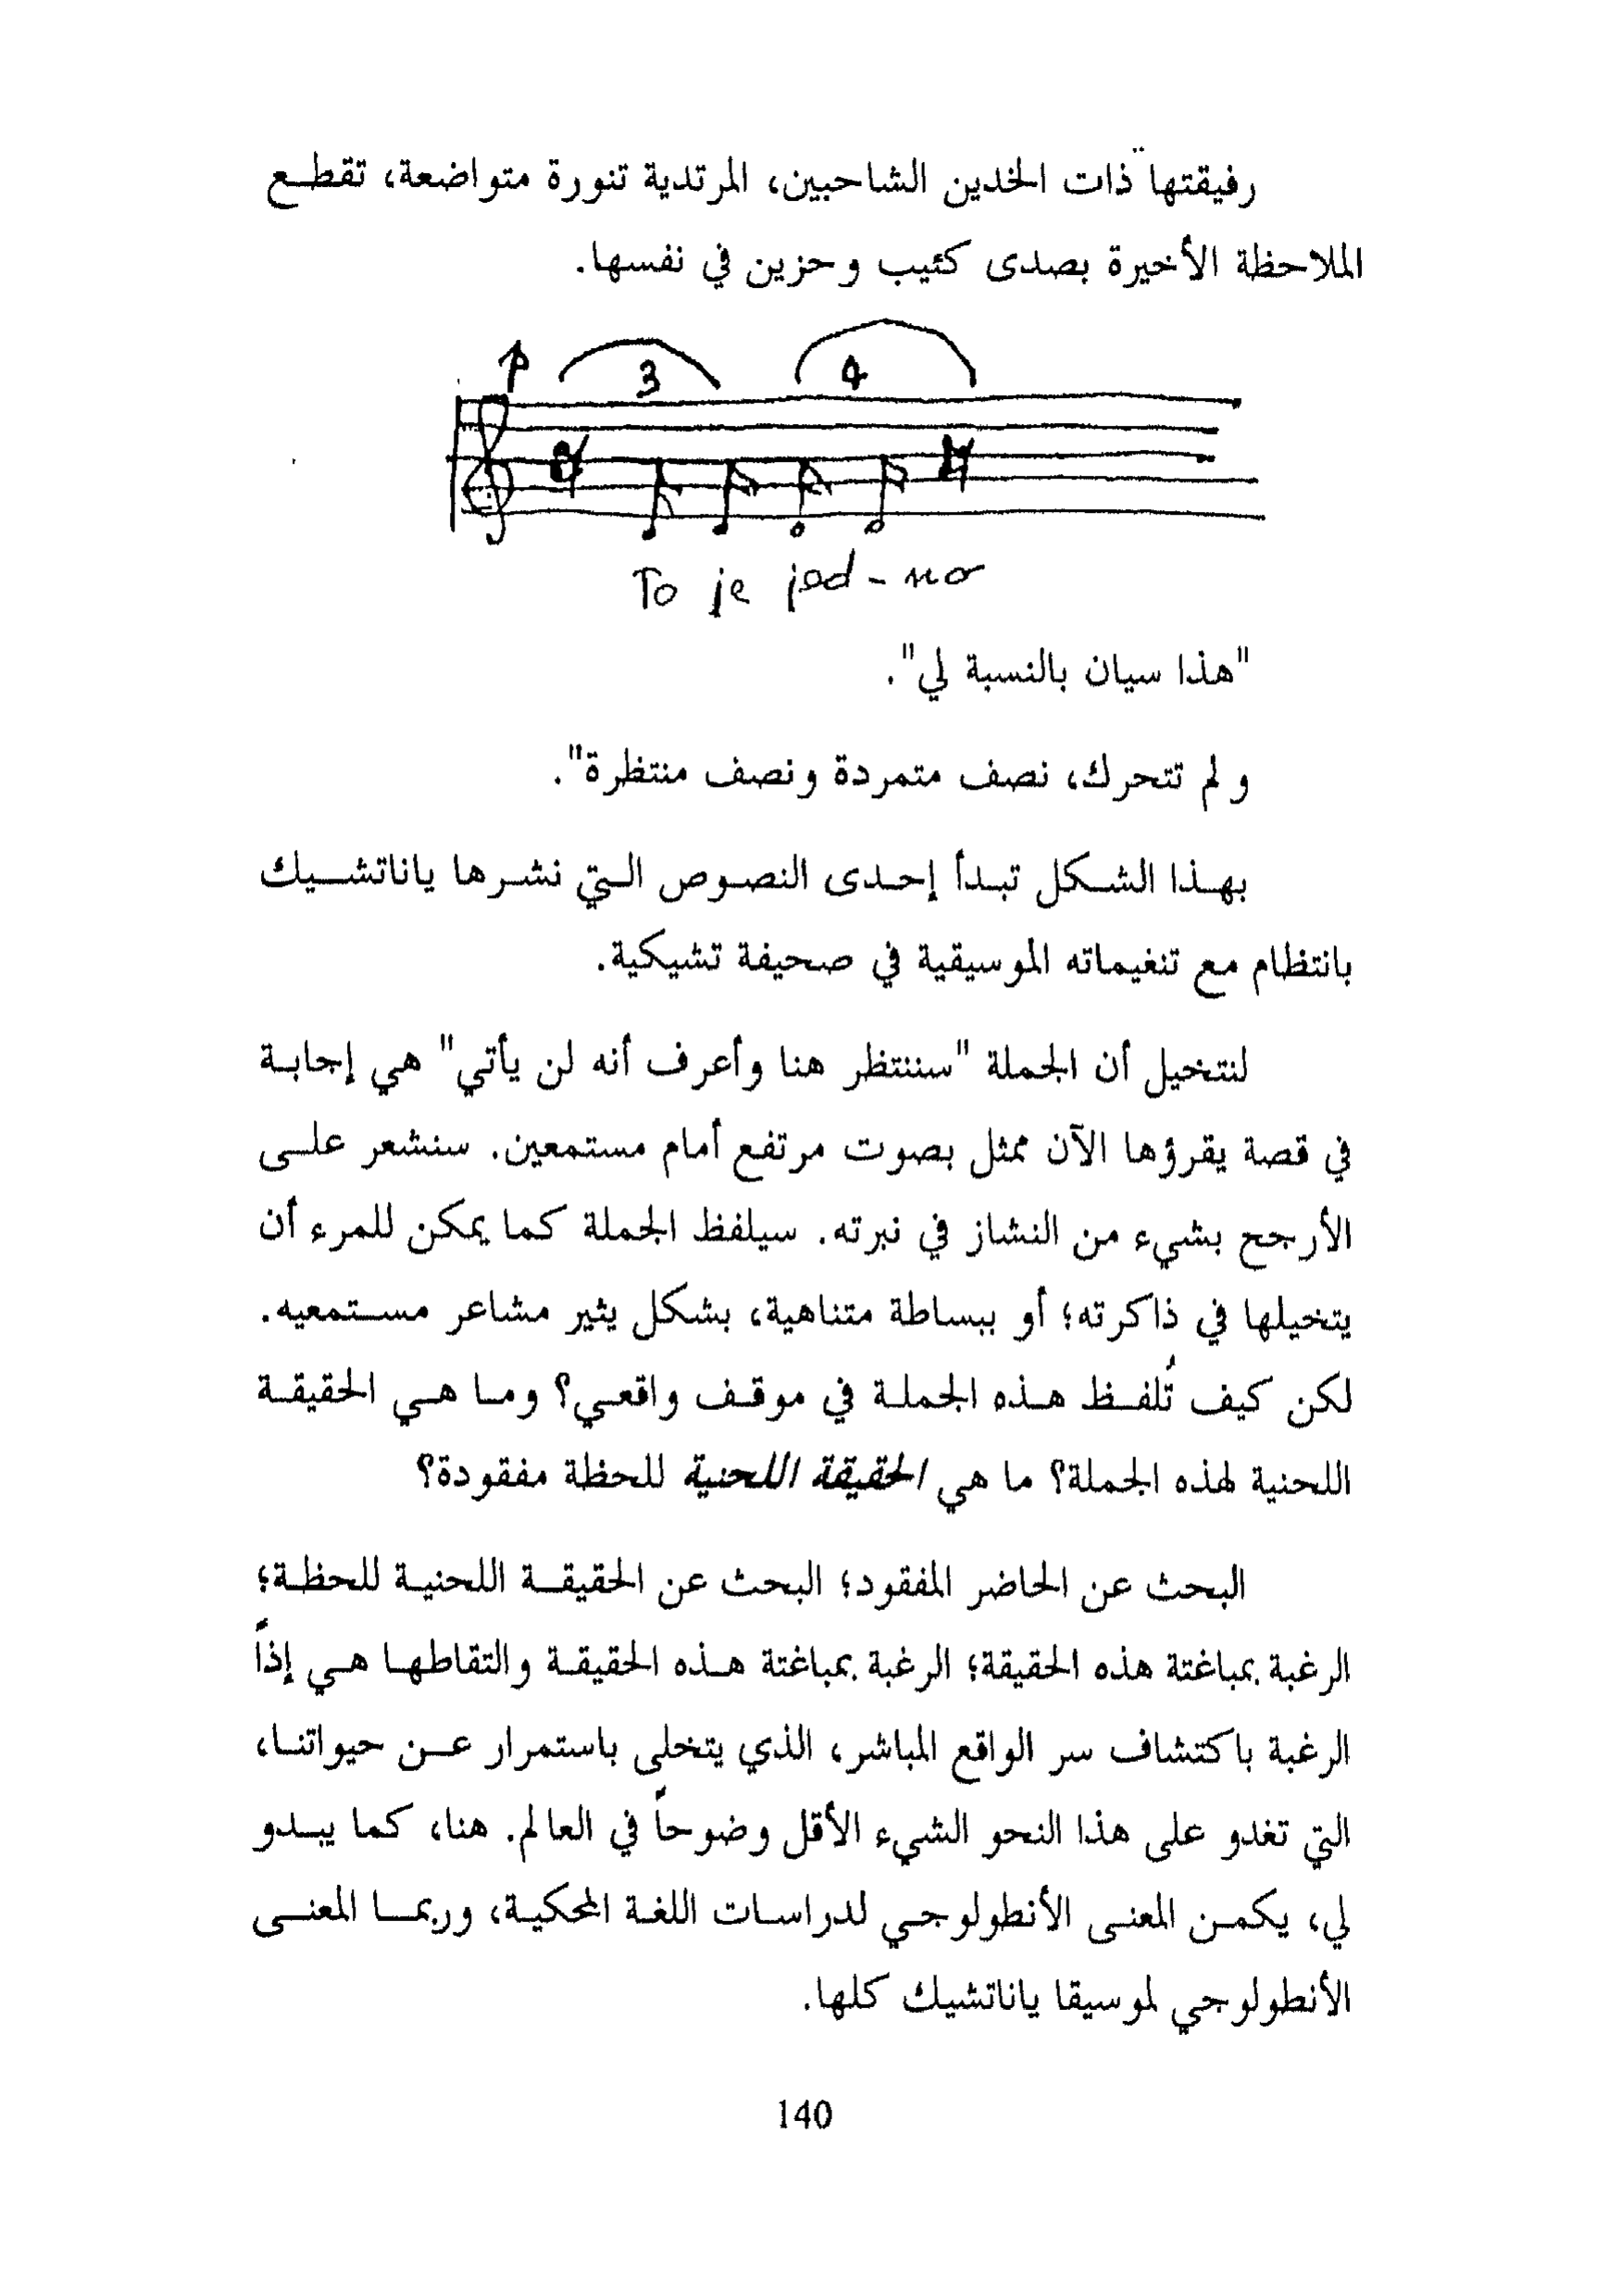 رفيقتها ذات الخدين الشاحبين، المرتدية تنورة متواضعة، تقطع
الملاحظة الأخيرة بصدى كئيب وحزين في نفسها.
3 4
To je jed-no
"هذا سيان بالنسبة لي".
و لم تتحرك، نصف متمردة ونصف منتظرة".
بهذا الشكل تبدأ إحدى النصوص التي نشرها ياناتشيك
بانتظام مع تنغيماته الموسيقية في صحيفة تشيكية.
لنتخيل أن الجملة "سننتظر هنا وأعرف أنه لن يأتي" هي إجابة
في قصة يقرؤها الآن ممثل بصوت مرتفع أمام مستمعين. سنشعر على
الأرجح بشيء من النشاز في نبرته. سيلفظ الجملة كما يمكن للمرء أن
يتخيلها في ذاكرته؛ أو ببساطة متناهية، بشكل يثير مشاعر مستمعيه.
لكن كيف تُلفظ هذه الجملة في موقف واقعي؟ وما هي الحقيقة
اللحنية لهذه الجملة؟ ما هي الحقيقة اللحنية للحظة مفقودة؟
البحث عن الحاضر المفقود؛ البحث عن الحقيقة اللحنية للحظة؛
الرغبة بمباغتة هذه الحقيقة؛ الرغبة بمباغتة هذه الحقيقة والتقاطها هي إذاً
الرغبة باكتشاف سر الواقع المباشر، الذي يتخلى باستمرار عن حيواتنا،
التي تغدو على هذا النحو الشيء الأقل وضوحاً في العالم. هنا، كما يبدو
لي، يكمن المعنى الأنطولوجي لدراسات اللغة المحكية، وربما المعنى
الأنطولوجي لموسيقا ياناتشيك كلها.
140